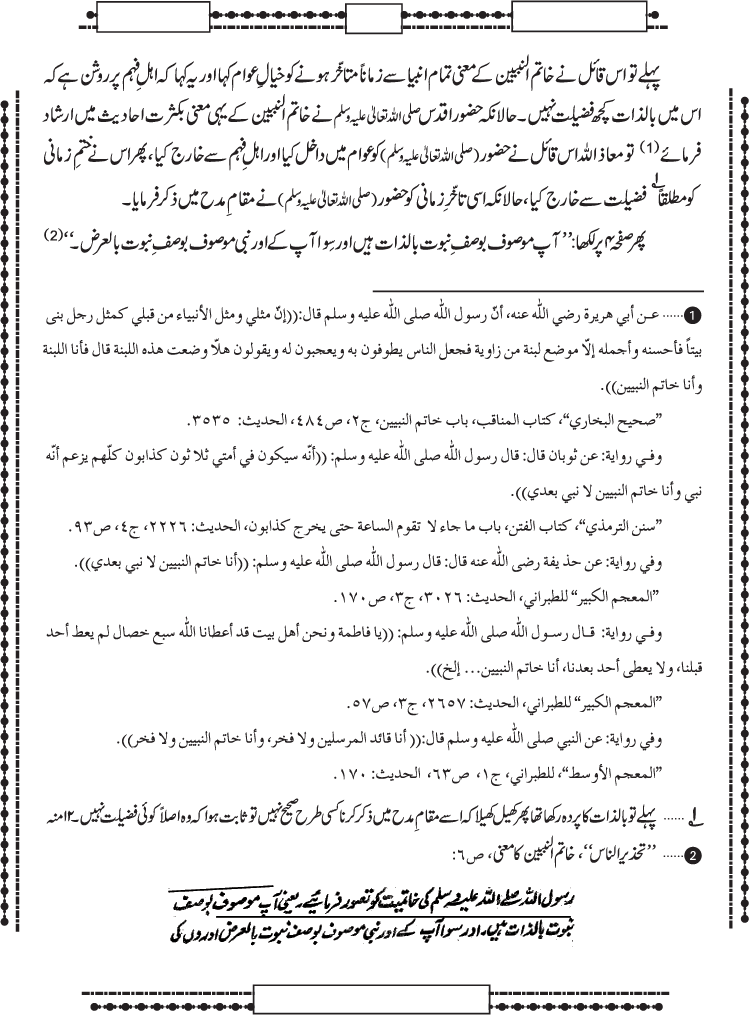 پہلے تو اس قائل نے خاتم النبیین کے معنی تمام انبیا سے زماناً متاخر ہونے کو خیالِ عوام کہا اور یہ کہا کہ اہلِ فہم پر روشن ہے کہ
اس میں بالذات کچھ فضیلت نہیں۔ حالانکہ حضور اقدس صلی اللہ تعالیٰ علیہ وسلم نے خاتم النبیین کے یہی معنی بکثرت احادیث میں ارشاد
فرمائے (1) تو معاذ اللہ اس قائل نے حضور (صلی اللہ تعالیٰ علیہ وسلم) کو عوام میں داخل کیا اور اہلِ فہم سے خارج کیا، پھر اس نے ختمِ زمانی
کو مطلقاً ؂۱ فضیلت سے خارج کیا، حالانکہ اسی تاخّرِ زمانی کو حضور (صلی اللہ تعالیٰ علیہ وسلم) نے مقامِ مدح میں ذکر فرمایا۔
پھر صفحہ ۴ پر لکھا: ’’آپ موصوف بوصفِ نبوت بالذات ہیں اور سِوا آپ کے اور نبی موصوف بوصفِ نبوت بالعرض۔‘‘ (2)
1 ...... عـن أبي هريرة رضي الله عنه، أنّ رسول الله صلى الله عليه وسلم قال:((إنّ مثلي ومثل الأنبياء من قبلي كمثل رجل بنى
بيتاً فأحسنه وأجمله إلّا موضع لبنة من زاوية فجعل الناس يطوفون به ويعجبون له ويقولون هلّا وضعت هذه اللبنة قال فأنا اللبنة
وأنا خاتم النبيين)).
”صحيح البخاري“، كتاب المناقب، باب خاتم النبيين، ج٢، ص٤٨٤، الحديث: ٣٥٣٥.
وفـي رواية: عن ثوبان قال: قال رسول الله صلى الله عليه وسلم: ((أنّه سيكون في أمتي ثلا ثون كذابون كلّهم يزعم أنّه
نبي وأنا خاتم النبيين لا نبي بعدي)).
”سنن الترمذي“، كتاب الفتن، باب ما جاء لا تقوم الساعة حتى يخرج كذابون، الحديث: ٢٢٢٦، ج٤، ص٩٣.
وفي رواية: عن حذيفة رضى الله عنه قال: قال رسول الله صلى الله عليه وسلم: ((أنا خاتم النبيين لا نبي بعدي)).
”المعجم الكبير“ للطبراني، الحديث: ٣٠٢٦، ج٣، ص١٧٠.
وفـي رواية: قـال رسـول الله صلى الله عليه وسلم: ((يا فاطمة ونحن أهل بيت قد أعطانا الله سبع خصال لم يعط أحد
قبلنا، ولا يعطى أحد بعدنا، أنا خاتم النبيين... إلخ)).
”المعجم الكبير“ للطبراني، الحديث: ٢٦٥٧، ج٣، ص٥٧.
وفي رواية: عن النبي صلى الله عليه وسلم قال:(( أنا قائد المرسلين ولا فخر، وأنا خاتم النبيين ولا فخر)).
”المعجم الأوسط“، للطبراني، ج١، ص٦٣، الحديث: ١٧٠.
؂۱ ...... پہلے تو بالذات کا پردہ رکھا تھا پھر کھیل کھیلا کہ اسے مقامِ مدح میں ذکر کرنا کسی طرح صحیح نہیں تو ثابت ہوا کہ وہ اصلاً کوئی فضیلت نہیں۔ ۱۲ منہ
2 ...... ’’تحذیر الناس‘‘، خاتم النبیین کا معنی، ص٦:
رسول اللہ صلے اللہ علیہ وسلم کی خاتمیت کو تصور فرمائیے۔ یعنی آپ موصوف بوصف
نبوت بالذات ہیں۔ اور سوا آپ کے اور نبی موصوف بوصف نبوت بالعرض اوروں کی